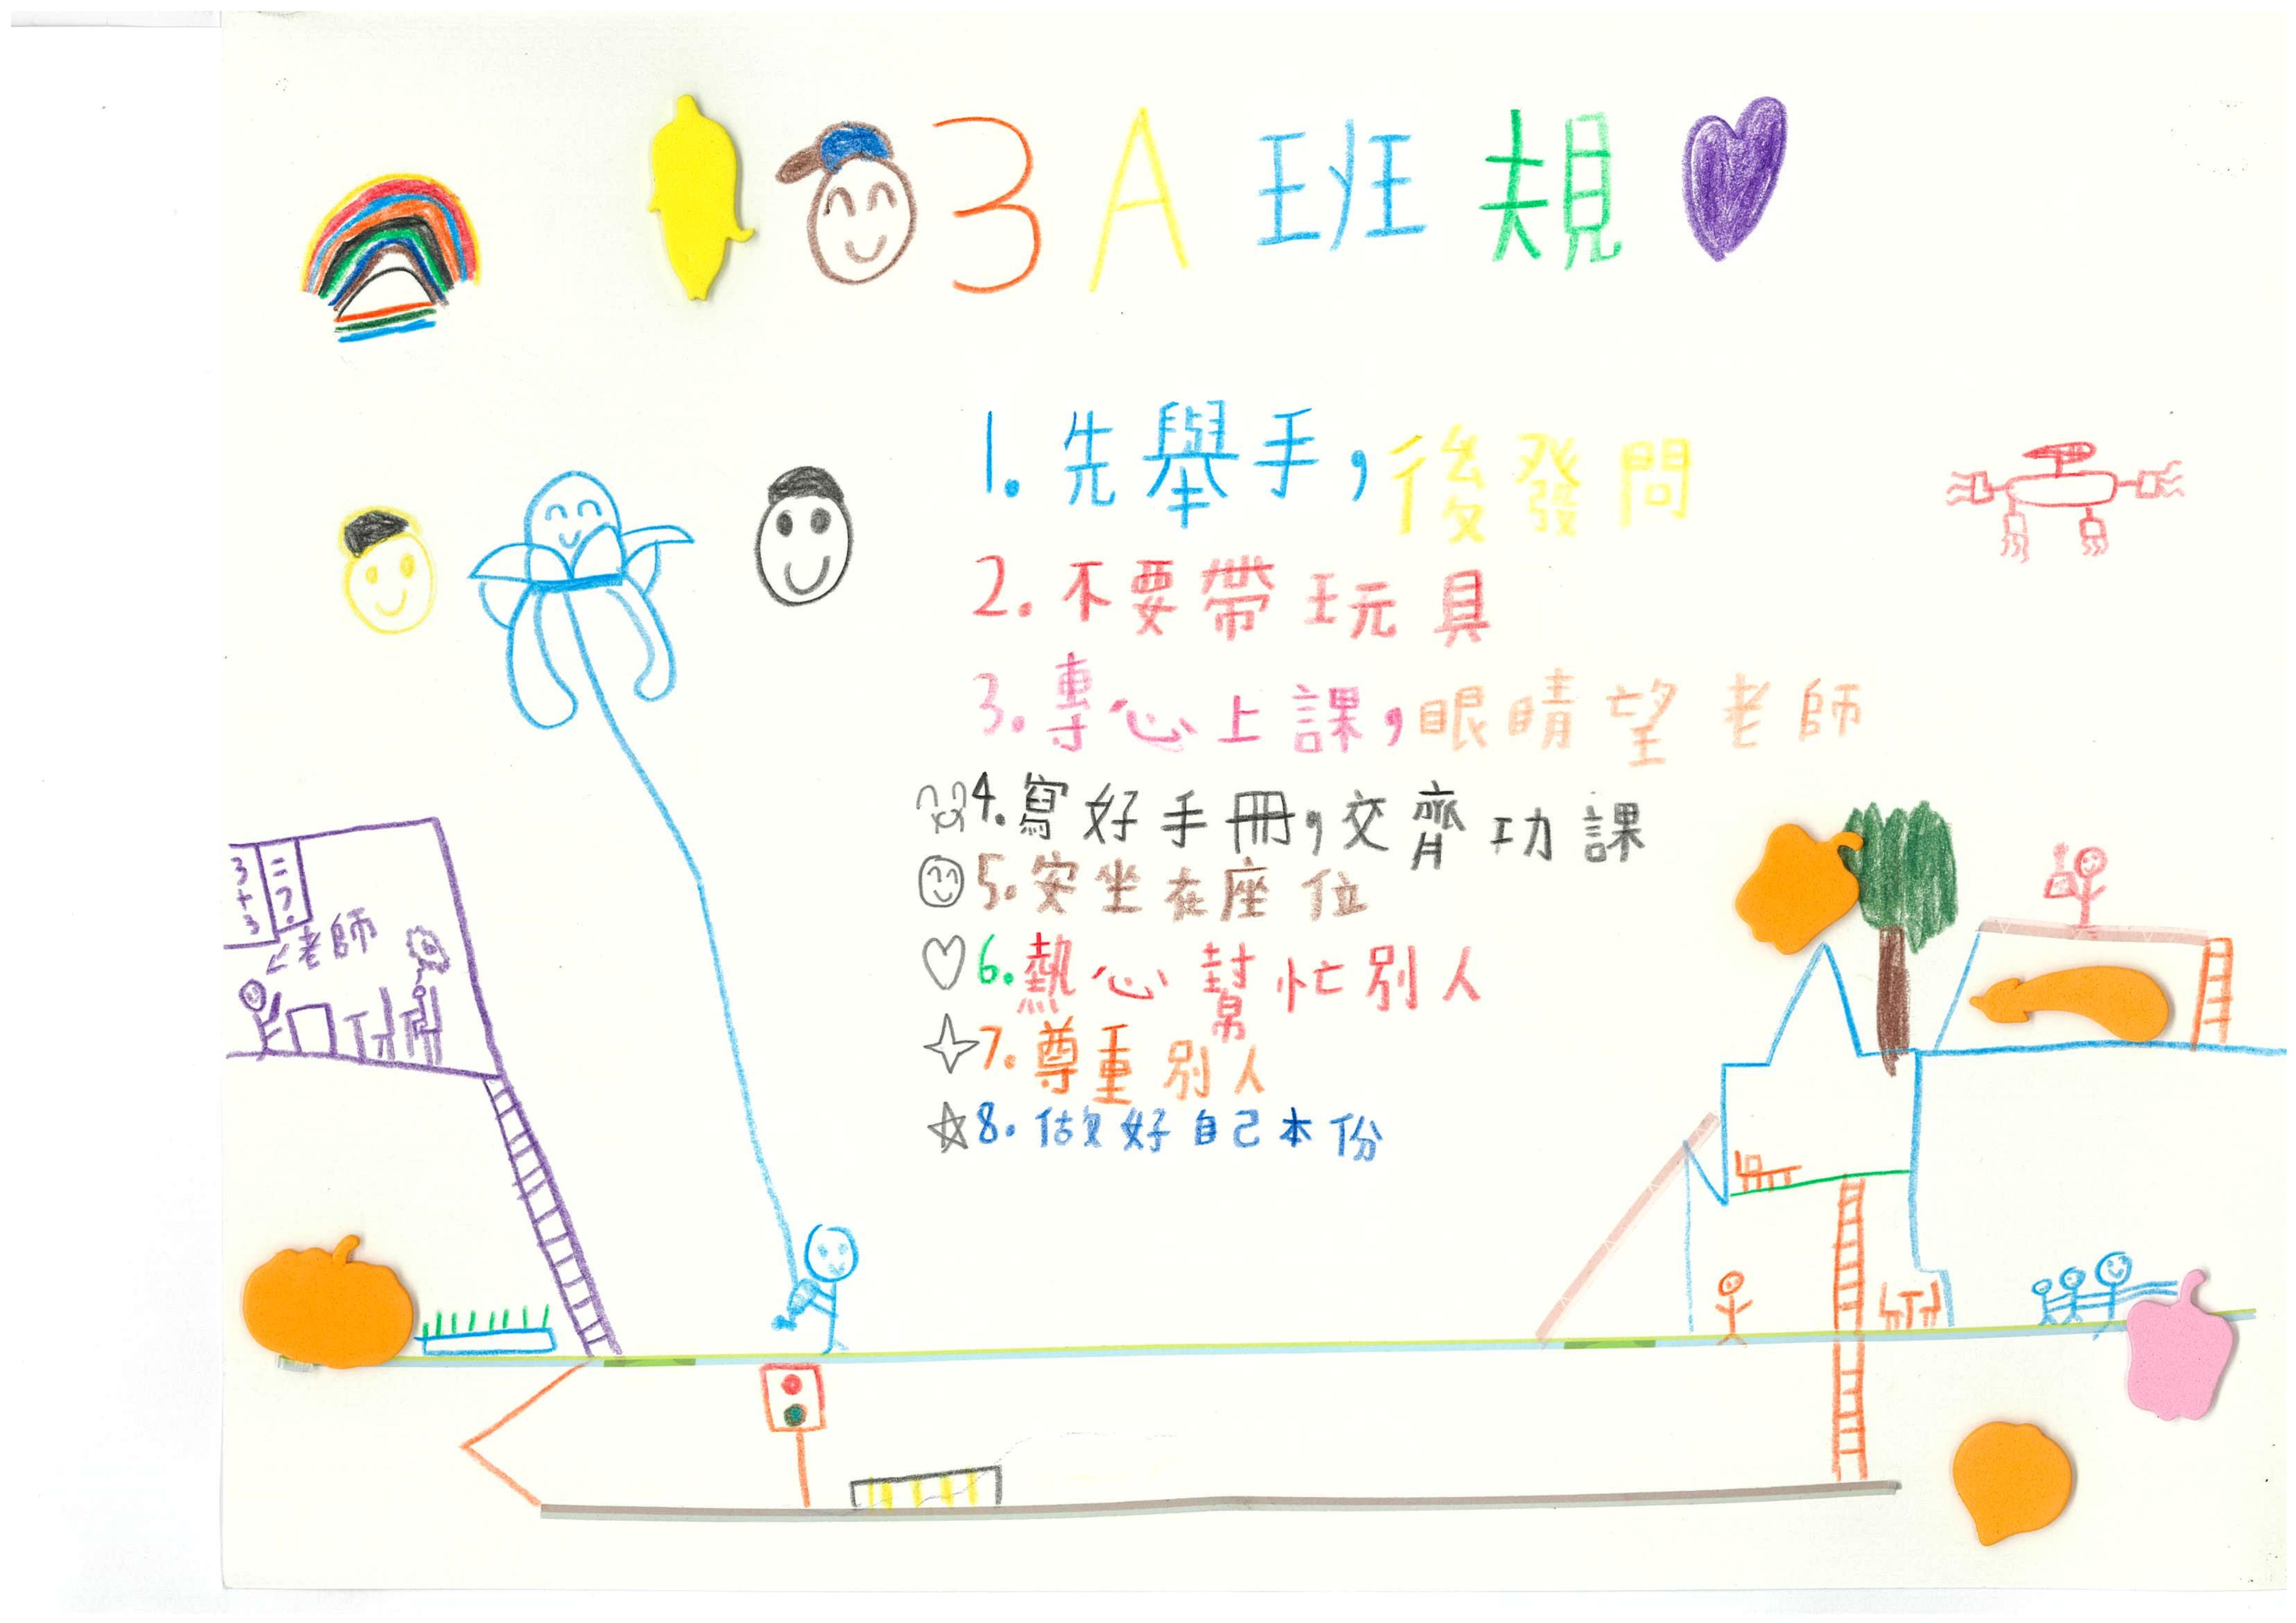 3A班規
1. 先舉手,後發問
2. 不要帶玩具
3. 專心上課,眼睛望老師
4. 寫好手冊,交齊功課
5. 安坐在座位
6. 熱心幫忙別人
7. 尊重別人
8. 做好自己本份
3+3
=?
老師